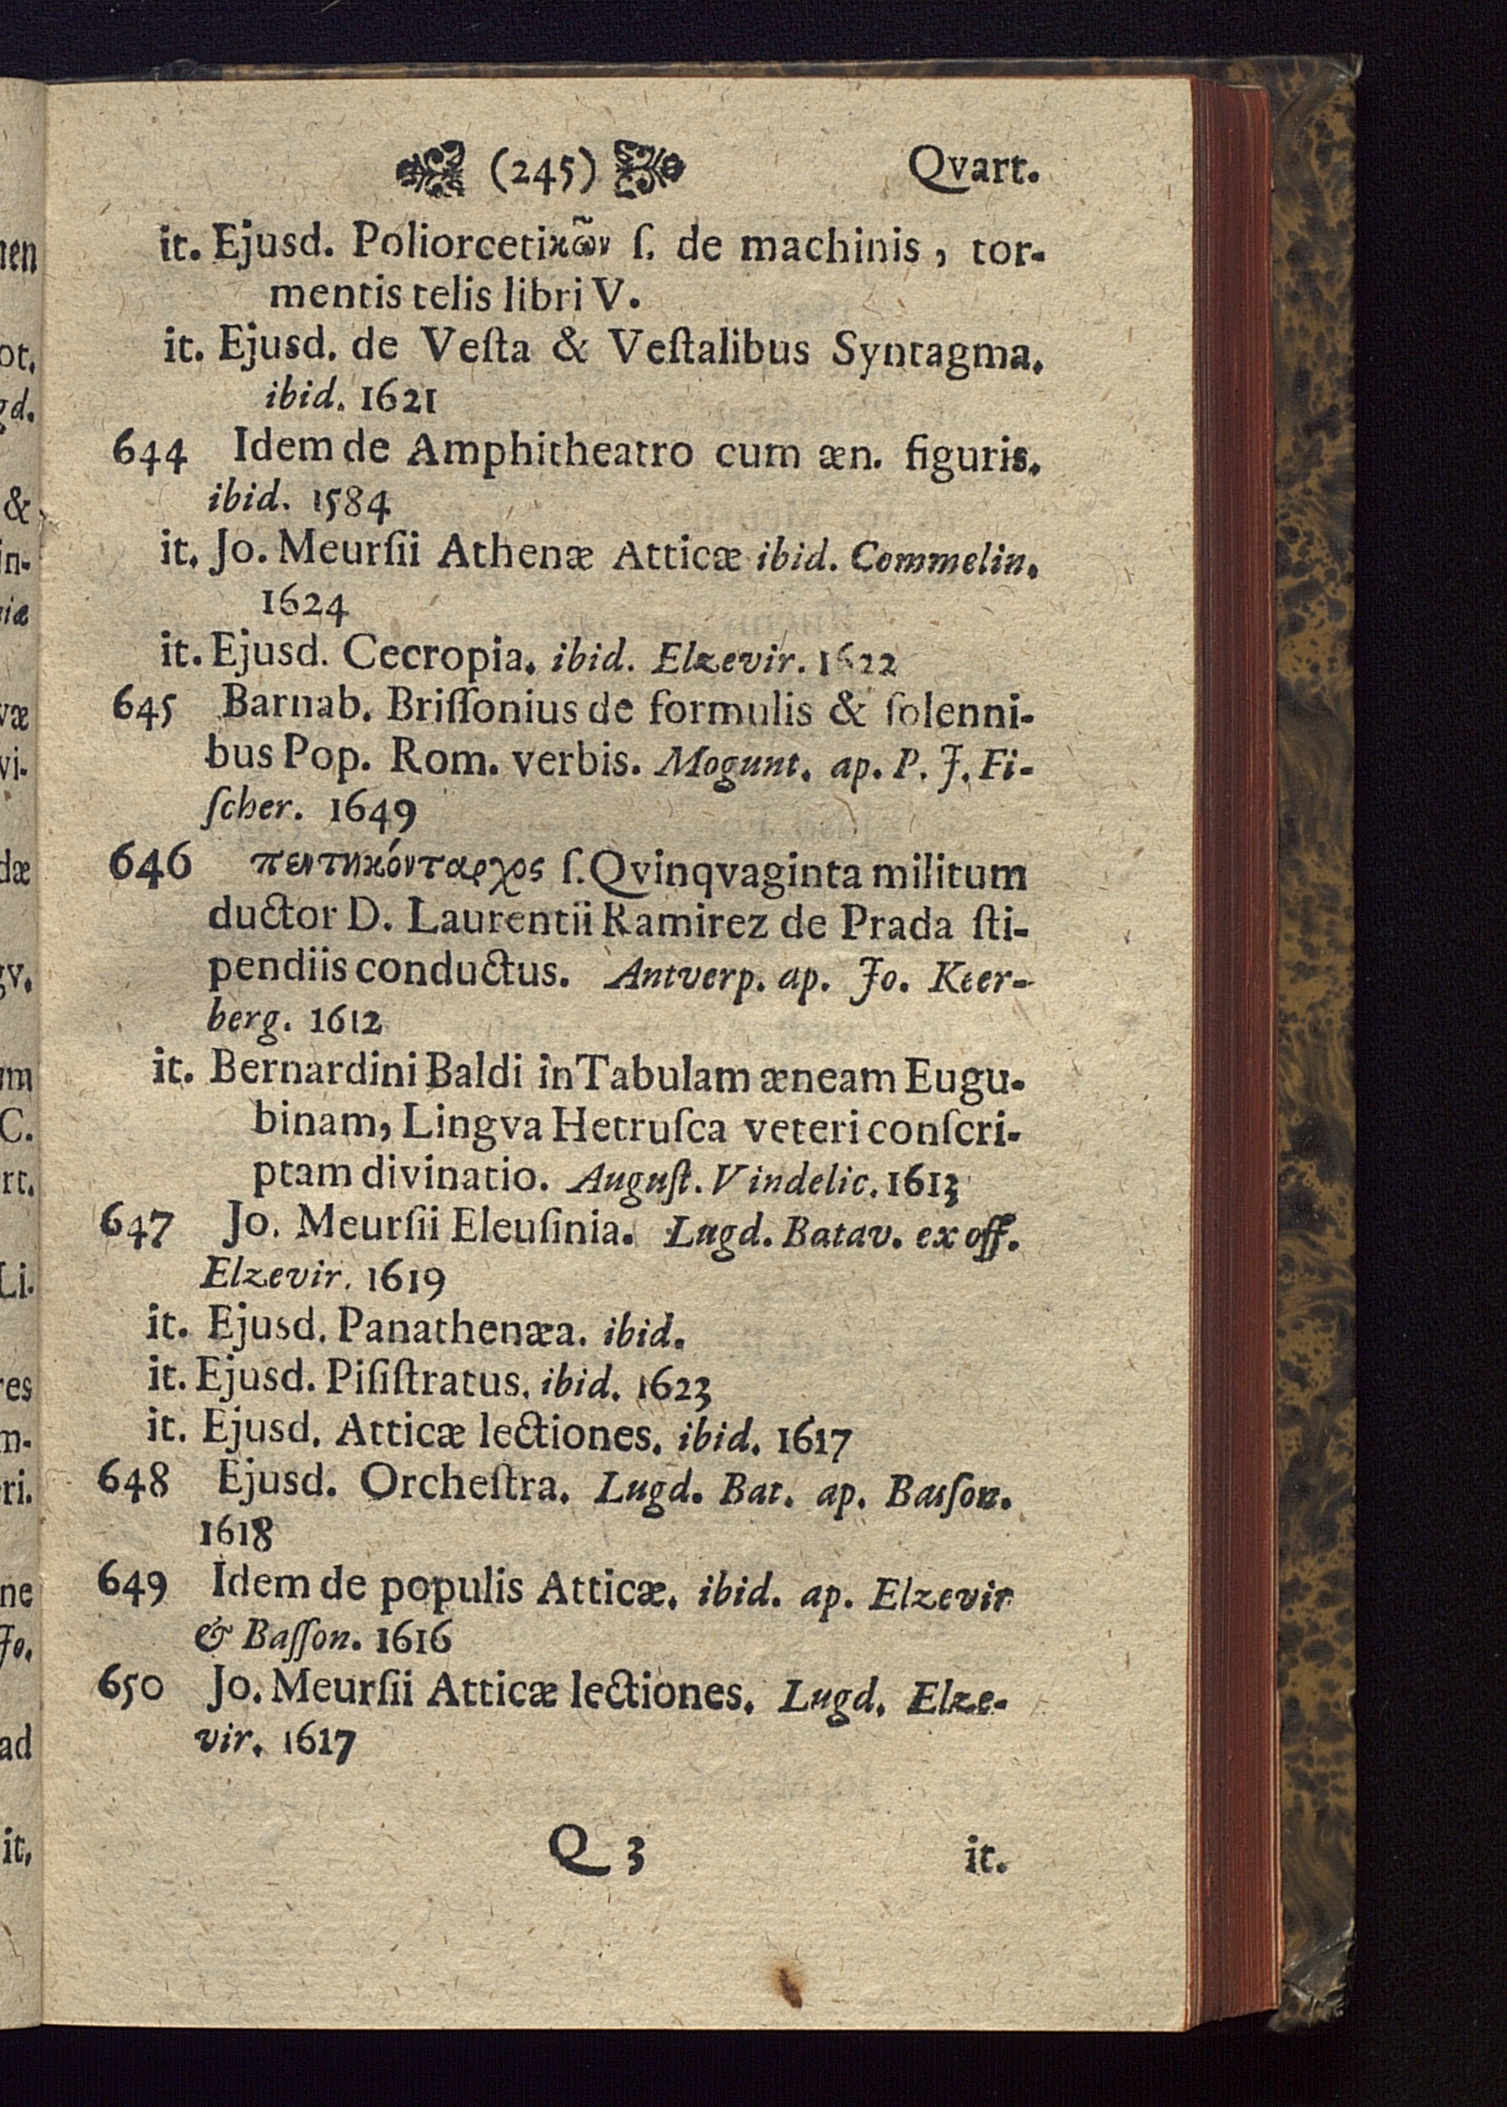 (245) Qvart.
it. Ejusd. Poliorcetικῶν ſ. de machinis, tor-
mentis telis libri V.
it. Ejusd. de Veſta & Veſtalibus Syntagma.
ibid. 1621
644 Idem de Amphitheatro cum æn. figuris.
ibid. 1584
it. Jo. Meurſii Athenæ Atticæ ibid. Commelin.
1624
it. Ejusd. Cecropia. ibid. Elzevir. 1622
645 Barnab. Briſſonius de formulis & ſolenni-
bus Pop. Rom. verbis. Mogunt. ap. P. J. Fi-
ſcher. 1649
646 πεντηκόνταρχος ſ. Qvinqvaginta militum
ductor D. Laurentii Ramirez de Prada ſti-
pendiis conductus. Antverp. ap. Jo. Keer-
berg. 1612
it. Bernardini Baldi in Tabulam æneam Eugu-
binam, Lingva Hetruſca veteri conſcri-
ptam divinatio. Auguſt. Vindelic. 1613
647 Jo. Meurſii Eleuſinia. Lugd. Batav. ex off.
Elzevir. 1619
it. Ejusd. Panathenæa. ibid.
it. Ejusd. Piſiſtratus. ibid. 1623
it. Ejusd. Atticæ lectiones. ibid. 1617
648 Ejusd. Orcheſtra. Lugd. Bat. ap. Basſon.
1618
649 Idem de populis Atticæ. ibid. ap. Elzevir
& Baſſon. 1616
650 Jo. Meurſii Atticæ lectiones. Lugd. Elze-
vir. 1617
Q 3 it.